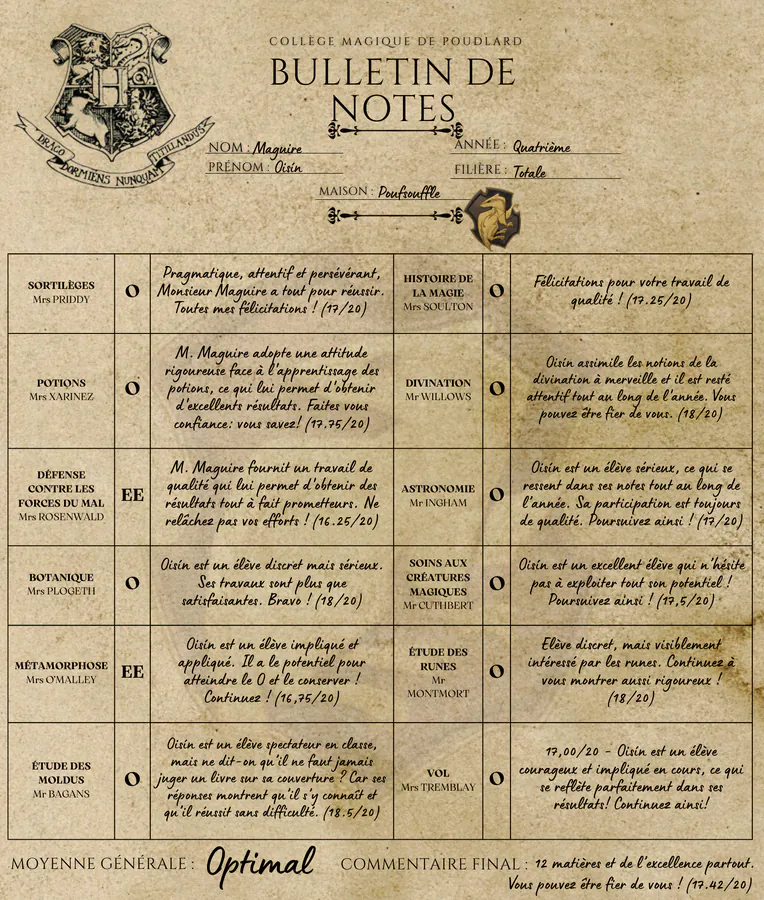 COLLÈGE MAGIQUE DE POUDLARD
BULLETIN DE
NOTES
DRACO DORMIENS NUNQUAM TITILLANDUS
NOM : Maguire
PRÉNOM : Oisín
ANNÉE : Quatrième
FILIÈRE : Totale
MAISON : Poufsouffle
SORTILÈGES
Mrs PRIDDY
O
Pragmatique, attentif et persévérant,
Monsieur Maguire a tout pour réussir.
Toutes mes félicitations ! (17/20)
HISTOIRE DE
LA MAGIE
Mrs SOULTON
O
Félicitations pour votre travail de
qualité ! (17.25/20)
POTIONS
Mrs XARINEZ
O
M. Maguire adopte une attitude
rigoureuse face à l'apprentissage des
potions, ce qui lui permet d'obtenir
d'excellents résultats. Faites vous
confiance: vous savez! (17.75/20)
DIVINATION
Mr WILLOWS
O
Oisín assimile les notions de la
divination à merveille et il est resté
attentif tout au long de l'année. Vous
pouvez être fier de vous. (18/20)
DÉFENSE
CONTRE LES
FORCES DU MAL
Mrs ROSENWALD
EE
M. Maguire fournit un travail de
qualité qui lui permet d'obtenir des
résultats tout à fait prometteurs. Ne
relâchez pas vos efforts ! (16.25/20)
ASTRONOMIE
Mr INGHAM
O
Oisín est un élève sérieux, ce qui se
ressent dans ses notes tout au long de
l'année. Sa participation est toujours
de qualité. Poursuivez ainsi ! (17/20)
BOTANIQUE
Mrs PLOGETH
O
Oisín est un élève discret mais sérieux.
Ses travaux sont plus que
satisfaisantes. Bravo ! (18/20)
SOINS AUX
CRÉATURES
MAGIQUES
Mr CUTHBERT
O
Oisín est un excellent élève qui n'hésite
pas à exploiter tout son potentiel !
Poursuivez ainsi ! (17,5/20)
MÉTAMORPHOSE
Mrs O'MALLEY
EE
Oisín est un élève impliqué et
appliqué. Il a le potentiel pour
atteindre le O et le conserver !
Continuez ! (16,75/20)
ÉTUDE DES
RUNES
Mr
MONTMORT
O
Elève discret, mais visiblement
intéressé par les runes. Continuez à
vous montrer aussi rigoureux !
(18/20)
ÉTUDE DES
MOLDUS
Mr BAGANS
O
Oisín est un élève spectateur en classe,
mais ne dit-on qu'il ne faut jamais
juger un livre sur sa couverture ? Car ses
réponses montrent qu'il s'y connaît et
qu'il réussit sans difficulté. (18.5/20)
VOL
Mrs TREMBLAY
O
17,00/20 - Oisín est un élève
courageux et impliqué en cours, ce qui
se reflète parfaitement dans ses
résultats! Continuez ainsi!
MOYENNE GÉNÉRALE : Optimal
COMMENTAIRE FINAL : 12 matières et de l'excellence partout.
Vous pouvez être fier de vous ! (17.42/20)